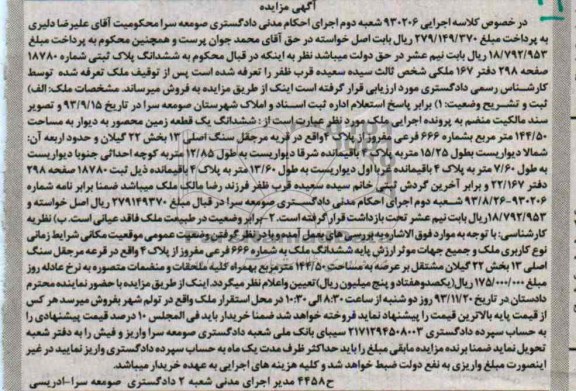 آگهی مزایده
در خصوص کلاسه اجرایی ۹۳۰۲۰۶ شعبه دوم اجرای احکام مدنی دادگستری صومعه سرا محکومیت آقای علیرضا دلیری
به پرداخت مبلغ ۲۷۹/۱۴۹/۳۷۰ ریال بابت اصل خواسته در حق آقای محمد جوان پرست و همچنین محکوم به پرداخت مبلغ
۱۸/۷۹۲/۹۵۳ ریال بابت نیم عشر در حق دولت میباشد نظر به اینکه در قبال محکوم به ششدانگ پلاک ثبتی شماره ۱۸۷۸۰
صفحه ۲۹۸ دفتر ۱۶۷ ملکی شخص ثالث سیده سعیده قرب ظفر را تعرفه شده است پس از توقیف ملک تعرفه شده توسط
کارشناس رسمی دادگستری مورد ارزیابی قرار گرفته است اینک از طریق مزایده به فروش میرساند. مشخصات ملک: الف)
ثبت و تشریح وضعیت: ۱) برابر پاسخ استعلام اداره ثبت اسناد و املاک شهرستان صومعه سرا در تاریخ ۹۳/۹/۱۵ و تصویر
سند مالکیت منضم به پرونده اجرایی ملک مورد نظر عبارت است از: ششدانگ یک قطعه زمین محصور به دیوار به مساحت
۱۴۴/۵۰ متر مربع بشماره ۶۶۶ فرعی مفروز از پلاک ۴ واقع در قریه مرجقل سنگ اصلی ۱۳ بخش ۲۲ گیلان و حدود اربعه آن:
شمالا دیواریست بطول ۱۵/۲۵ متر به پلاک ۴ باقیمانده شرقا دیواریست به طول ۱۲/۸۵ متر به کوچه احداثی جنوبا دیواریست
به طول ۷/۶۰ متر به پلاک ۴ باقیمانده غربا اول دیواریست به طول ۱۳/۶۰ متر به پلاک ۴ باقیمانده ذیل ثبت ۱۸۷۸۰ صفحه ۲۹۸
دفتر ۲۲/۱۶۷ و برابر آخرین گردش ثبتی خانم سیده سعیده قرب ظفر فرزند رضا مالک ملک میباشد ضمنا برابر نامه شماره
۹۳۰۲۰۶-۹۳/۸/۲۶ شعبه دوم اجرای احکام مدنی دادگستری صومعه سرا در قبال مبلغ ۲۷۹۱۴۹۳۷۰ ریال اصل خواسته و
۱۸/۷۹۲/۹۵۳ ریال بابت نیم عشر تحت بازداشت قرار گرفته است. ۲-برابر وضعیت در طبیعت ملک فاقد عیانی است. ب) نظریه
کارشناسی: با توجه به موارد فوق الاشاره به بررسی های بعمل آمده و با در نظر گرفتن وضعیت عمومی موقعیت مکانی شرایط زمانی
نوع کاربری ملک و جمیع جهات موثر ارزش پایه ششدانگ ملک به شماره ۶۶۶ فرعی مفروز از پلاک ۴ واقع در قریه مرجقل سنگ
اصلی ۱۳ بخش ۲۲ گیلان مشتقل بر عرصه به مساحت ۱۴۴/۵۰ مترمربع بهمراه کلیه ملحقات و منضمات متصوره به نرخ عادله روز
مبلغ ۱۷۵/۰۰۰/۰۰۰ ریال (یکصد و هفتاد و پنج میلیون ریال) تعیین و اعلام نظر میگردد. اینک از طریق مزایده با حضور نماینده محترم
دادستان در تاریخ ۹۳/۱۱/۲۰ روز دو شنبه از ساعت ۸:۳۰ الی ۱۰:۳۰ در محل استقرار ملک واقع در تولم شهر بفروش میرسد هر کس
از قیمت پایه بالاترین قیمت را پیشنهاد نماید فروخته خواهد شد ضمنا خریدار باید فی المجلس ۱۰ درصد قیمت پیشنهادی را
به حساب سپرده دادگستری ۲۱۷۱۲۹۴۵۰۸۰۰۳ سیبای بانک ملی شعبه دادگستری صومعه سرا واریز و فیش را به دفتر شعبه
تحویل نماید ضمنا برنده مزایده مابقی مبلغ را باید حداکثر ظرف مدت یک ماه به حساب سپرده دادگستری واریز نمایید در غیر
اینصورت مبلغ واریزی به نفع دولت ضبط خواهد شد و کلیه هزینه های اجرایی به عهده خریدار میباشد.
ح۴۴۵۸ مدیر اجرای مدنی شعبه ۲ دادگستری صومعه سرا-ادریسی